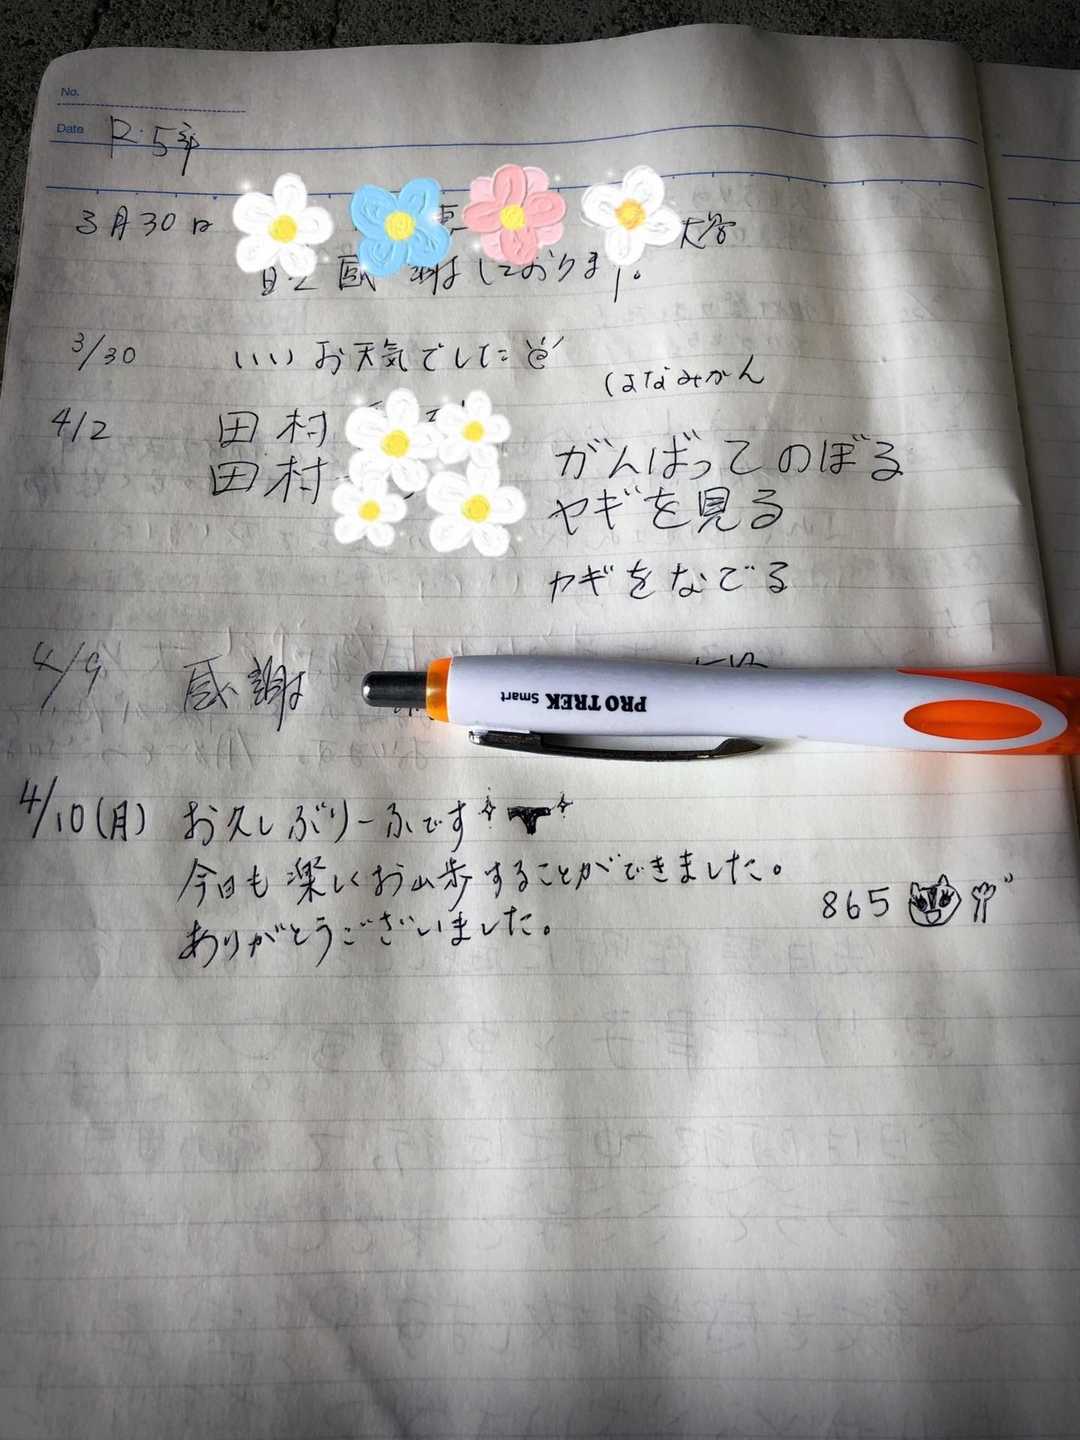 No.
Date R.5年
3月30日 大学
感謝しております。
3/30 いいお天気でした
はなみかん
4/2 田村
田村
がんばってのぼる
ヤギを見る
ヤギをなでる
4/9 感謝
PRO TREK Smart
4/10(月) お久しぶりーふです
今日も楽しくお山歩することができました。
ありがとうございました。
865